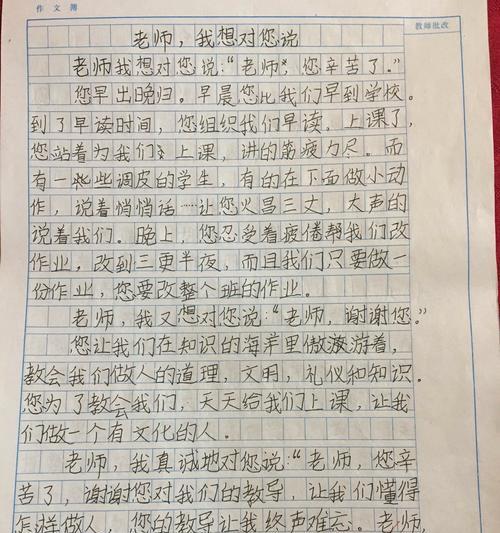 作文簿
教师批改
老师，我想对您说
老师我想对您说：“老师，您辛苦了。”
您早出晚归。早晨您比我们早到学校。
到了早读时间，您组织我们早读，上课了，
您站着为我们上课，讲的筋疲力尽。而
有一些些调皮的学生，有的在下面做小动
作，说着悄悄话……让您火冒三丈，大声的
说着我们。晚上，您忍受着疲倦帮我们改
作业，改到三更半夜，而且我们只要做一
份作业，您要改整个班的作业。
老师，我又想对您说：“老师，谢谢您。”
您让我们在知识的海洋里遨游着，
教会我们做人的道理，文明，礼仪和知识。
您为了教会我们，天天给我们上课，让我
们做一个有文化的人。
老师，我真诚地对您说：“老师，您辛
苦了，谢谢您对我们的教导，让我们懂得
怎样做人，您的教导让我终声难忘。老师，